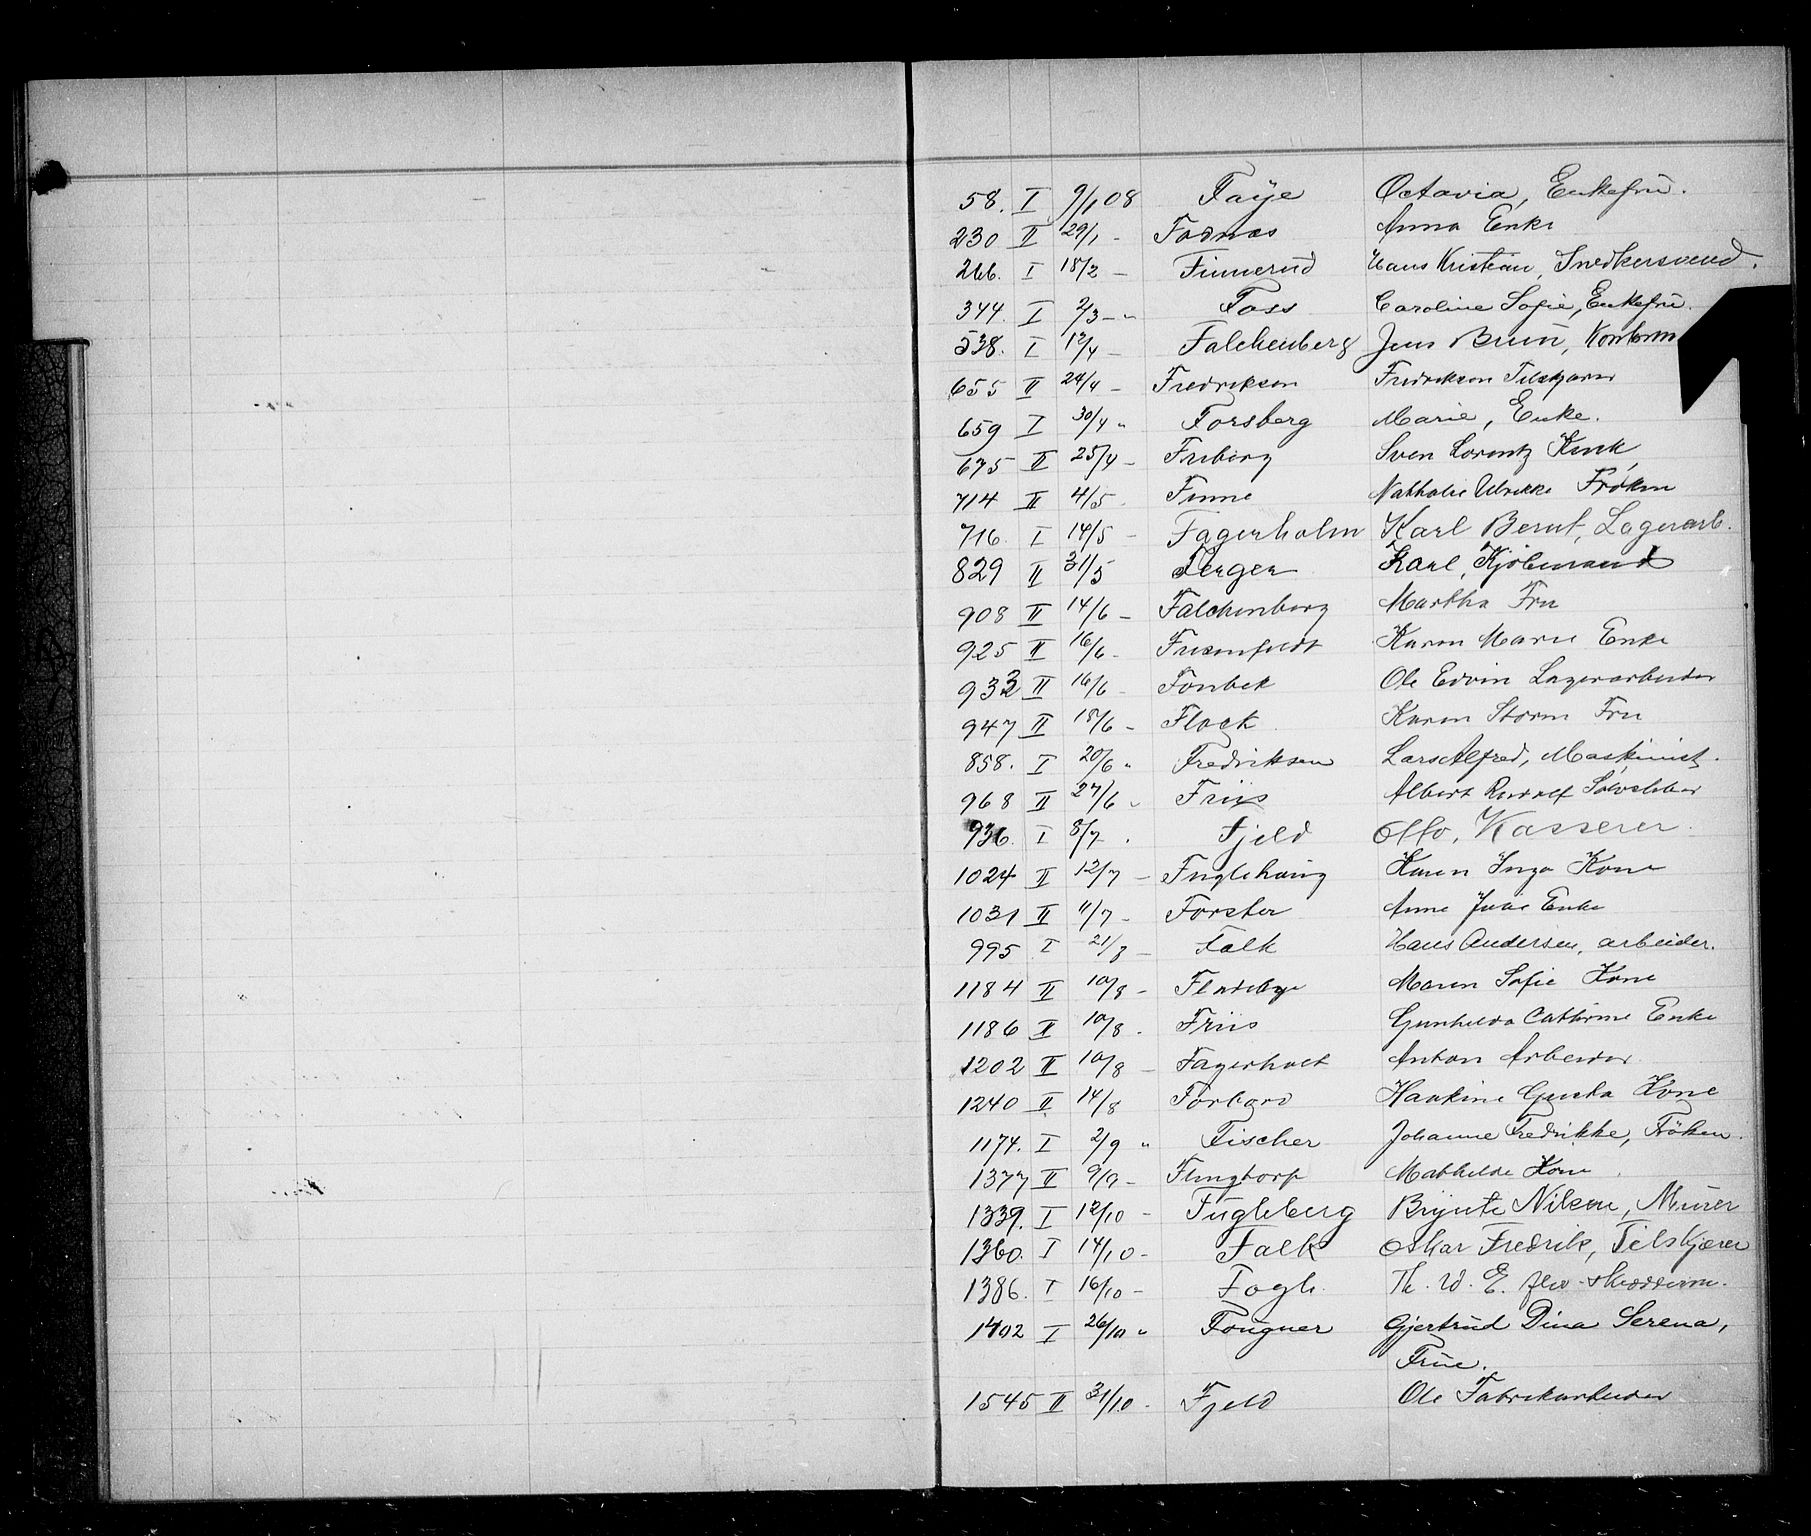 58. I 9/1 08 Faye Octavia, Enkefru.
230 II 29/1 - Fadnæs Anna Enke
266. I 18/2 - Finnerud Hans Kristian, Snedkersvend.
344. I 2/3 - " Foss Caroline Sofie, Enkefru.
538. I 12/4 - Falchenberg Jens Brun, Kontorm
655 II 24/4 - Fredriksen Fredriksen Tilskjærer
659 I 30/4 " Forsberg Marie, Enke.
675 II 25/4 - Friberg Sven Lorentz Kusk,
714 II 4/5 - Finne Nathalie Ulrikke Frøken
716. I 14/5 - Fagerholm Karl Bernt, Lagerarb.
829 II 31/5 Ferger Karl, Kjøbmand
908 II 14/6 - Falchenberg Martha Fru
925 II 16/6 - Karen Marie Enke
933 II 16/6 - Fonbek Ole Edvin Lagerarbeider
947 II 18/6 - Flock Karen Storm Fru
858. I 20/6 " Fredriksen Lars Alfred, Maskinist.
968 II 27/6 " Friis Albert Rudolf
936. I 8/7 . Fjeld Otto, Kasserer.
1024 II 12/7 - Fuglehaug Karen Inga Kone
1031 II 11/7 - Forster Anne Julie Enke
995 I 21/8 - Falk Hans Andersen, arbeider.
1184 II 10/8 - Fladebye Maren Sofie Kone
1186 II 10/8 . Friis Gunhilda Cathrine Enke
1202 II 10/8 - Fagerholt Anton Arbeider
1240 II 14/8 Forbord Haakine Gurka Kone
1174. I 2/9 " Fischer Johanne Fredrikke, Frøken.
1377 II 9/9 - Flingtorp Mathilde Kone
1339. I 12/10 - Fugleberg Brynte Nilsen, Murer
1360. I 14/10 - Falk Oskar Fredrik, Tilskjærer
1386. I 16/10 - Fogh. Th. W. E.
1402 I 26/10 " Fougner Gjertrud Dina Serena,
Frue.
1545 II 31/10 - Fjeld Ole Fabrikarbeider